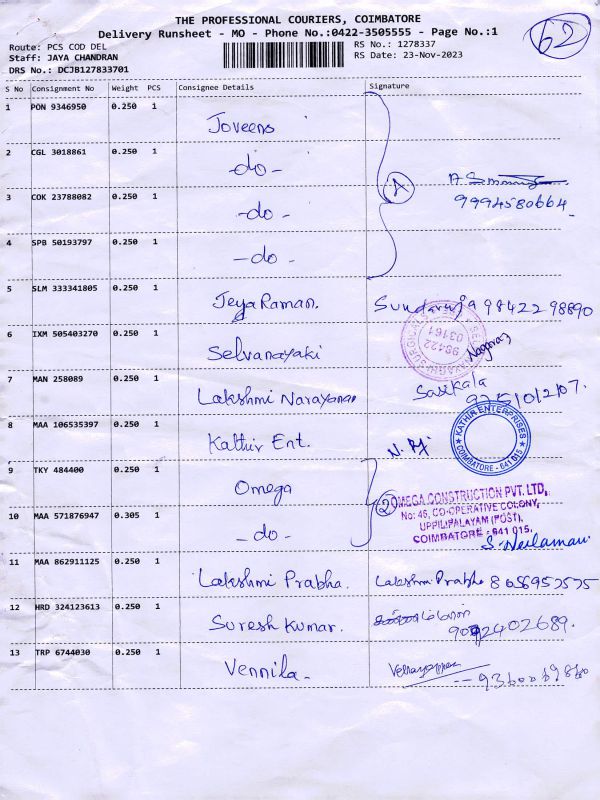 THE PROFESSIONAL COURIERS, COIMBATORE
Delivery Runsheet - MO - Phone No.:0422-3505555 - Page No.:1
62
Route: PCS COD DEL
RS No.: 1278337
Staff: JAYA CHANDRAN
RS Date: 23-Nov-2023
DRS No.: DCJB127833701
S No Consignment No Weight PCS Consignee Details Signature
1 PON 9346950 0.250 1 Joveens
2 CGL 3018861 0.250 1 -do-
A
3 COK 23788082 0.250 1 -do- 9994580664
4 SPB 50193797 0.250 1 -do-
5 SLM 333341805 0.250 1 JeyaRaman. Sundaraja 98422 98890
6 IXM 505403270 0.250 1 Selvanayaki Nagaraj
98422
03161
7 MAN 258089 0.250 1 Lakshmi Narayanan Sasikala
8 MAA 106535397 0.250 1 Kathir Ent.
KATHIR ENTERPRISES
COIMBATORE - 641 015
9 TKY 484400 0.250 1 Omega
2
OMEGA CONSTRUCTION PVT. LTD,
No: 46, CO-OPERATIVE COLONY,
UPPILIPALAYAM (POST),
COIMBATORE - 641 015.
10 MAA 571876947 0.305 1 -do-
11 MAA 862911125 0.250 1 Lakshmi Prabha. Lakshmi Prabha 8056957575
12 HRD 324123613 0.250 1 Suresh Kumar.
13 TRP 6744030 0.250 1 Vennila